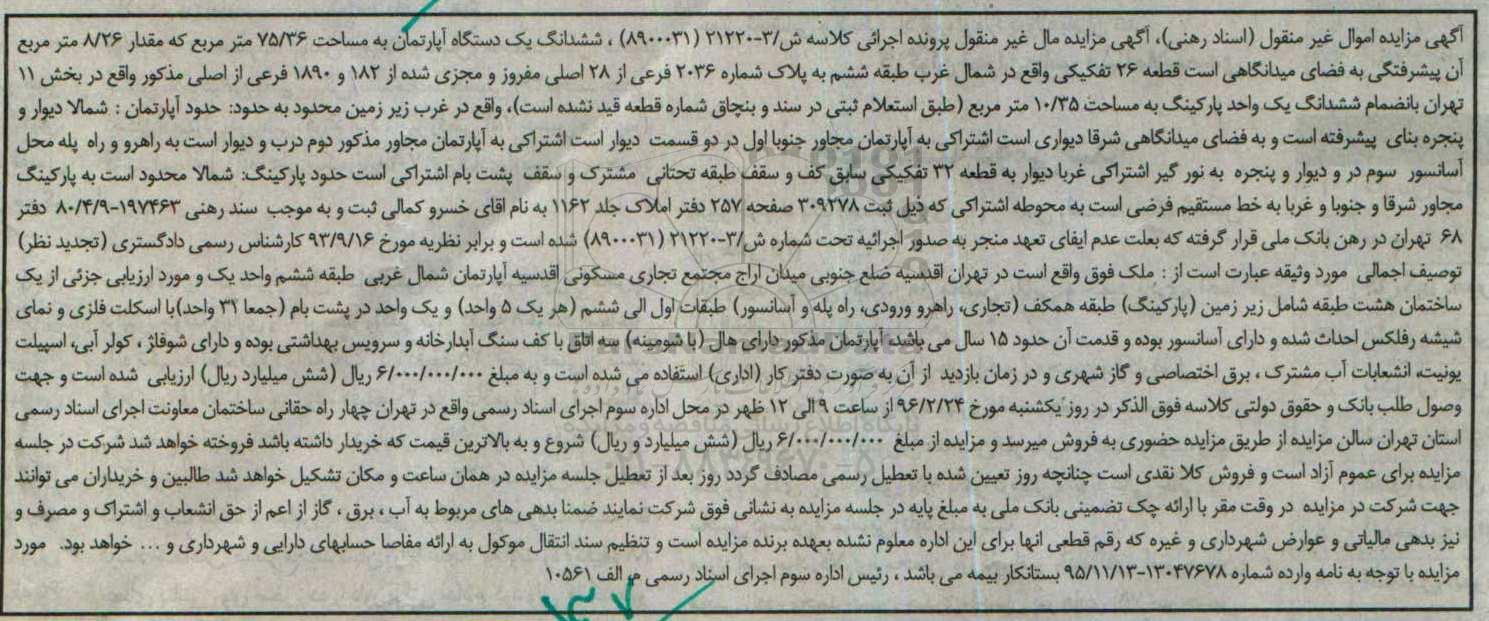 آگهی مزایده اموال غیر منقول (اسناد رهنی)، آگهی مزایده مال غیر منقول پرونده اجرائی کلاسه ش/۳-۲۱۲۲۰ (۸۹۰۰۰۳۱) ، ششدانگ یک دستگاه آپارتمان به مساحت ۷۵/۳۶ متر مربع که مقدار ۸/۲۶ متر مربع
آن پیشرفتگی به فضای میدانگاهی است قطعه ۲۶ تفکیکی واقع در شمال غرب طبقه ششم به پلاک شماره ۲۰۳۶ فرعی از ۲۸ اصلی مفروز و مجزی شده از ۱۸۲ و ۱۸۹۰ فرعی از اصلی مذکور واقع در بخش ۱۱
تهران بانضمام ششدانگ یک واحد پارکینگ به مساحت ۱۰/۳۵ متر مربع (طبق استعلام ثبتی در سند و بنچاق شماره قطعه قید نشده است)، واقع در غرب زیر زمین محدود به حدود: حدود آپارتمان : شمالا دیوار و
پنجره بنای پیشرفته است و به فضای میدانگاهی شرقا دیواری است اشتراکی به آپارتمان مجاور جنوبا اول در دو قسمت دیوار است اشتراکی به آپارتمان مجاور مذکور دوم درب و دیوار است به راهرو و راه پله محل
آسانسور سوم در و دیوار و پنجره به نور گیر اشتراکی غربا دیوار به قطعه ۳۲ تفکیکی سابق کف و سقف طبقه تحتانی مشترک و سقف پشت بام اشتراکی است حدود پارکینگ: شمالا محدود است به پارکینگ
مجاور شرقا و جنوبا و غربا به خط مستقیم فرضی است به محوطه اشتراکی که ذیل ثبت ۳۰۹۲۷۸ صفحه ۲۵۷ دفتر املاک جلد ۱۱۶۲ به نام اقای خسرو کمالی ثبت و به موجب سند رهنی ۱۹۷۴۶۳-۸۰/۴/۹ دفتر
۶۸ تهران در رهن بانک ملی قرار گرفته که بعلت عدم ایفای تعهد منجر به صدور اجرائیه تحت شماره ش/۳-۲۱۲۲۰ (۸۹۰۰۰۳۱) شده است و برابر نظریه مورخ ۹۳/۹/۱۶ کارشناس رسمی دادگستری (تجدید نظر)
توصیف اجمالی مورد وثیقه عبارت است از : ملک فوق واقع است در تهران اقدسیه ضلع جنوبی میدان اراج مجتمع تجاری مسکونی اقدسیه آپارتمان شمال غربی طبقه ششم واحد یک و مورد ارزیابی جزئی از یک
ساختمان هشت طبقه شامل زیر زمین (پارکینگ) طبقه همکف (تجاری، راهرو ورودی، راه پله و آسانسور) طبقات اول الی ششم (هر یک ۵ واحد) و یک واحد در پشت بام (جمعا ۳۱ واحد)با اسکلت فلزی و نمای
شیشه رفلکس احداث شده و دارای آسانسور بوده و قدمت آن حدود ۱۵ سال می باشد، آپارتمان مذکور دارای هال (با شومینه) سه اتاق با کف سنگ آبدارخانه و سرویس بهداشتی بوده و دارای شوفاژ ، کولر آبی، اسپیلت
یونیت، انشعابات آب مشترک ، برق اختصاصی و گاز شهری و در زمان بازدید از آن به صورت دفتر کار (اداری) استفاده می شده است و به مبلغ ۶/۰۰۰/۰۰۰/۰۰۰ ریال (شش میلیارد ریال) ارزیابی شده است و جهت
وصول طلب بانک و حقوق دولتی کلاسه فوق الذکر در روز یکشنبه مورخ ۹۶/۲/۲۴ از ساعت ۹ الی ۱۲ ظهر در محل اداره سوم اجرای اسناد رسمی واقع در تهران چهار راه حقانی ساختمان معاونت اجرای اسناد رسمی
استان تهران سالن مزایده از طریق مزایده حضوری به فروش میرسد و مزایده از مبلغ ۶/۰۰۰/۰۰۰/۰۰۰ ریال (شش میلیارد و ریال) شروع و به بالاترین قیمت که خریدار داشته باشد فروخته خواهد شد شرکت در جلسه
مزایده برای عموم آزاد است و فروش کلا نقدی است چنانچه روز تعیین شده با تعطیل رسمی مصادف گردد روز بعد از تعطیل جلسه مزایده در همان ساعت و مکان تشکیل خواهد شد طالبین و خریداران می توانند
جهت شرکت در مزایده در وقت مقر با ارائه چک تضمینی بانک ملی به مبلغ پایه در جلسه مزایده به نشانی فوق شرکت نمایند ضمنا بدهی های مربوط به آب ، برق ، گاز از اعم از حق انشعاب و اشتراک و مصرف و
نیز بدهی مالیاتی و عوارض شهرداری و غیره که رقم قطعی انها برای این اداره معلوم نشده بعهده برنده مزایده است و تنظیم سند انتقال موکول به ارائه مفاصا حسابهای دارایی و شهرداری و ... خواهد بود. مورد
مزایده با توجه به نامه وارده شماره ۱۳۰۴۷۶۷۸-۹۵/۱۱/۱۳ بستانکار بیمه می باشد ، رئیس اداره سوم اجرای اسناد رسمی م الف ۱۰۵۶۱